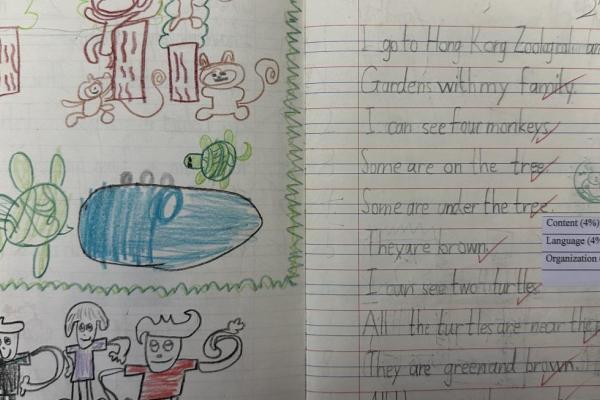 I go to Hong Kong Zoological an
Gardens with my family.
I can see four monkeys
Some are on the tree
Some are under the tree
They are brown.
I can see two turtles
All the turtles are near the
They are green and brown.
All
Content (4%)
Language (4%
Organization (